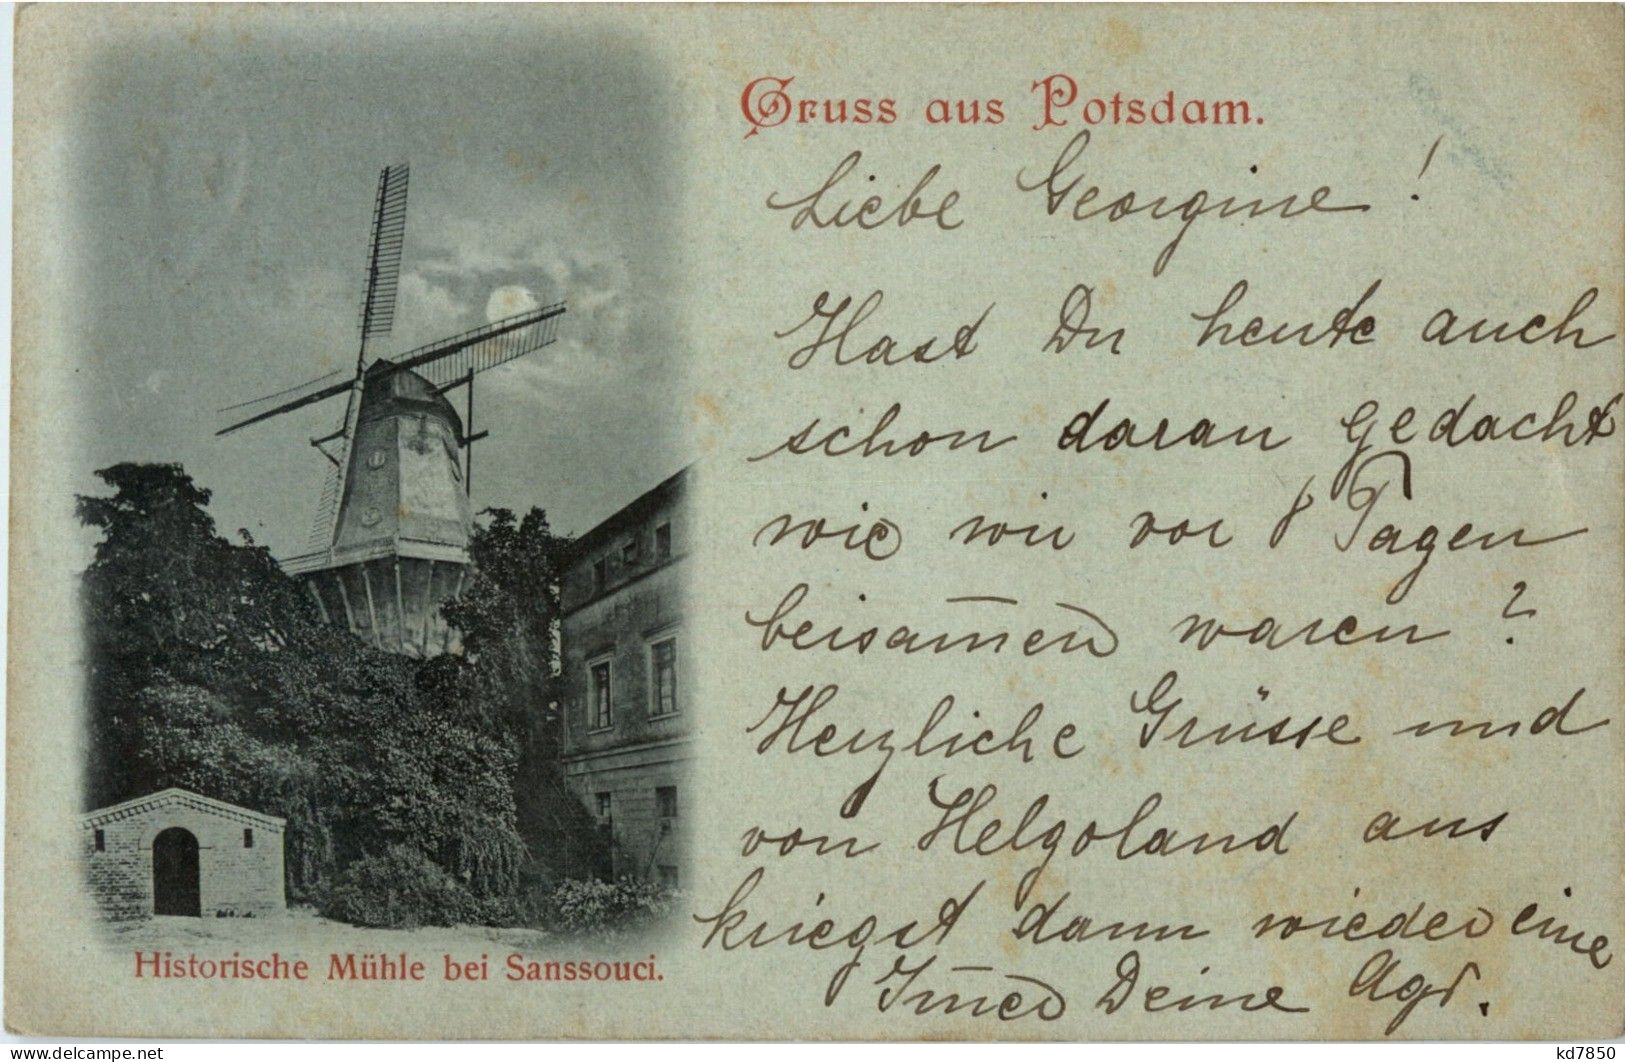 Gruss aus Potsdam.
Liebe Georgine!
Hast Du heute auch
schon daran gedacht
wie wir vor 8 Tagen
beisam̅en waren?
Herzliche Grüsse und
von Helgoland aus
kriegst dann wieder eine
Im̅er Deine Agr.
Historische Mühle bei Sanssouci.
www.delcampe.net
kd7850